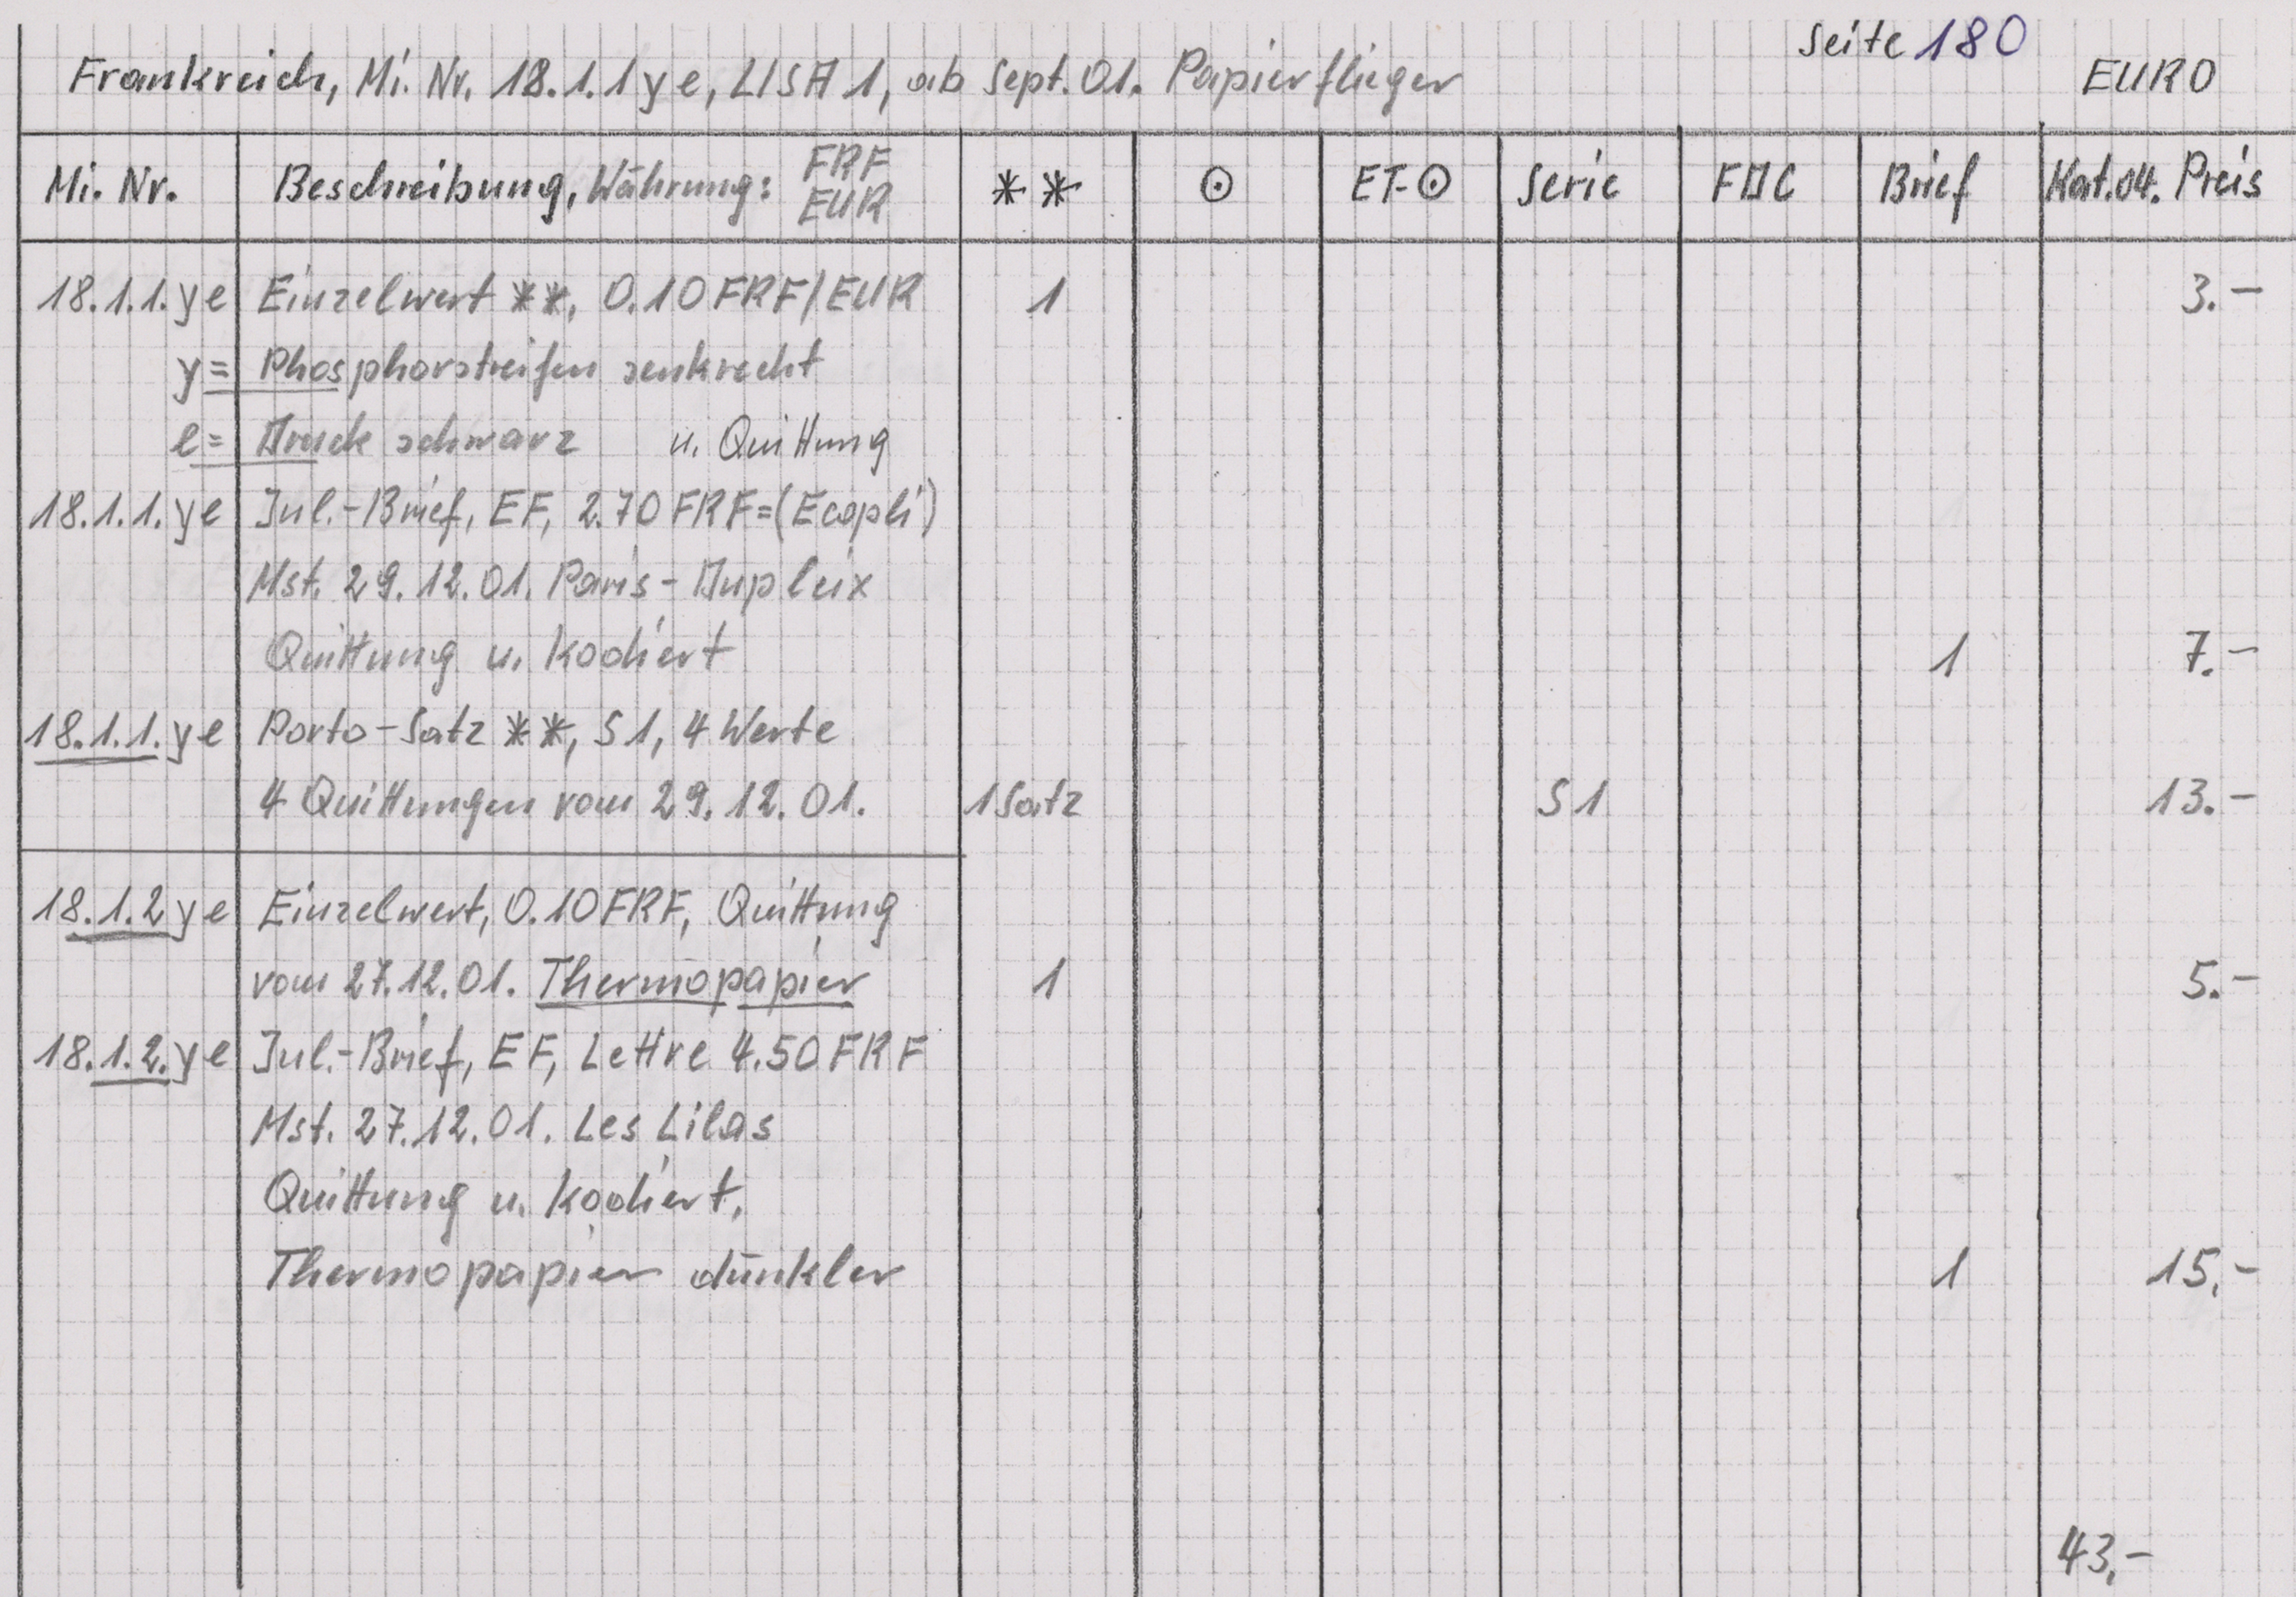 Seite 180
Frankreich, Mi. Nr. 18.1.1 y e, LISA 1, ab Sept. 01. Papierflieger EURO
Mi. Nr. Beschreibung, Währung: FRF EUR ** ⊙ ET-⊙ Serie FDC Brief Kat.04. Preis
18.1.1. y e Einzelwert **, 0.10 FRF/EUR 1 3.-
y = Phosphorstreifen senkrecht
e = Druck schwarz u. Quittung
18.1.1. y e Inl.-Brief, EF, 2.70 FRF=(Ecopli)
Mst. 29.12.01. Paris-Dupleix
Quittung u. Kodiert 1 7.-
18.1.1. y e Porto-Satz **, S1, 4 Werte
4 Quittungen vom 29.12.01. 1 Satz S1 13.-
18.1.2 y e Einzelwert, 0.10 FRF, Quittung
vom 27.12.01. Thermopapier 1 5.-
18.1.2. y e Inl.-Brief, EF, Lettre 4.50 FRF
Mst. 27.12.01. Les Lilas
Quittung u. Kodiert,
Thermopapier dunkler 1 15,-
43,-